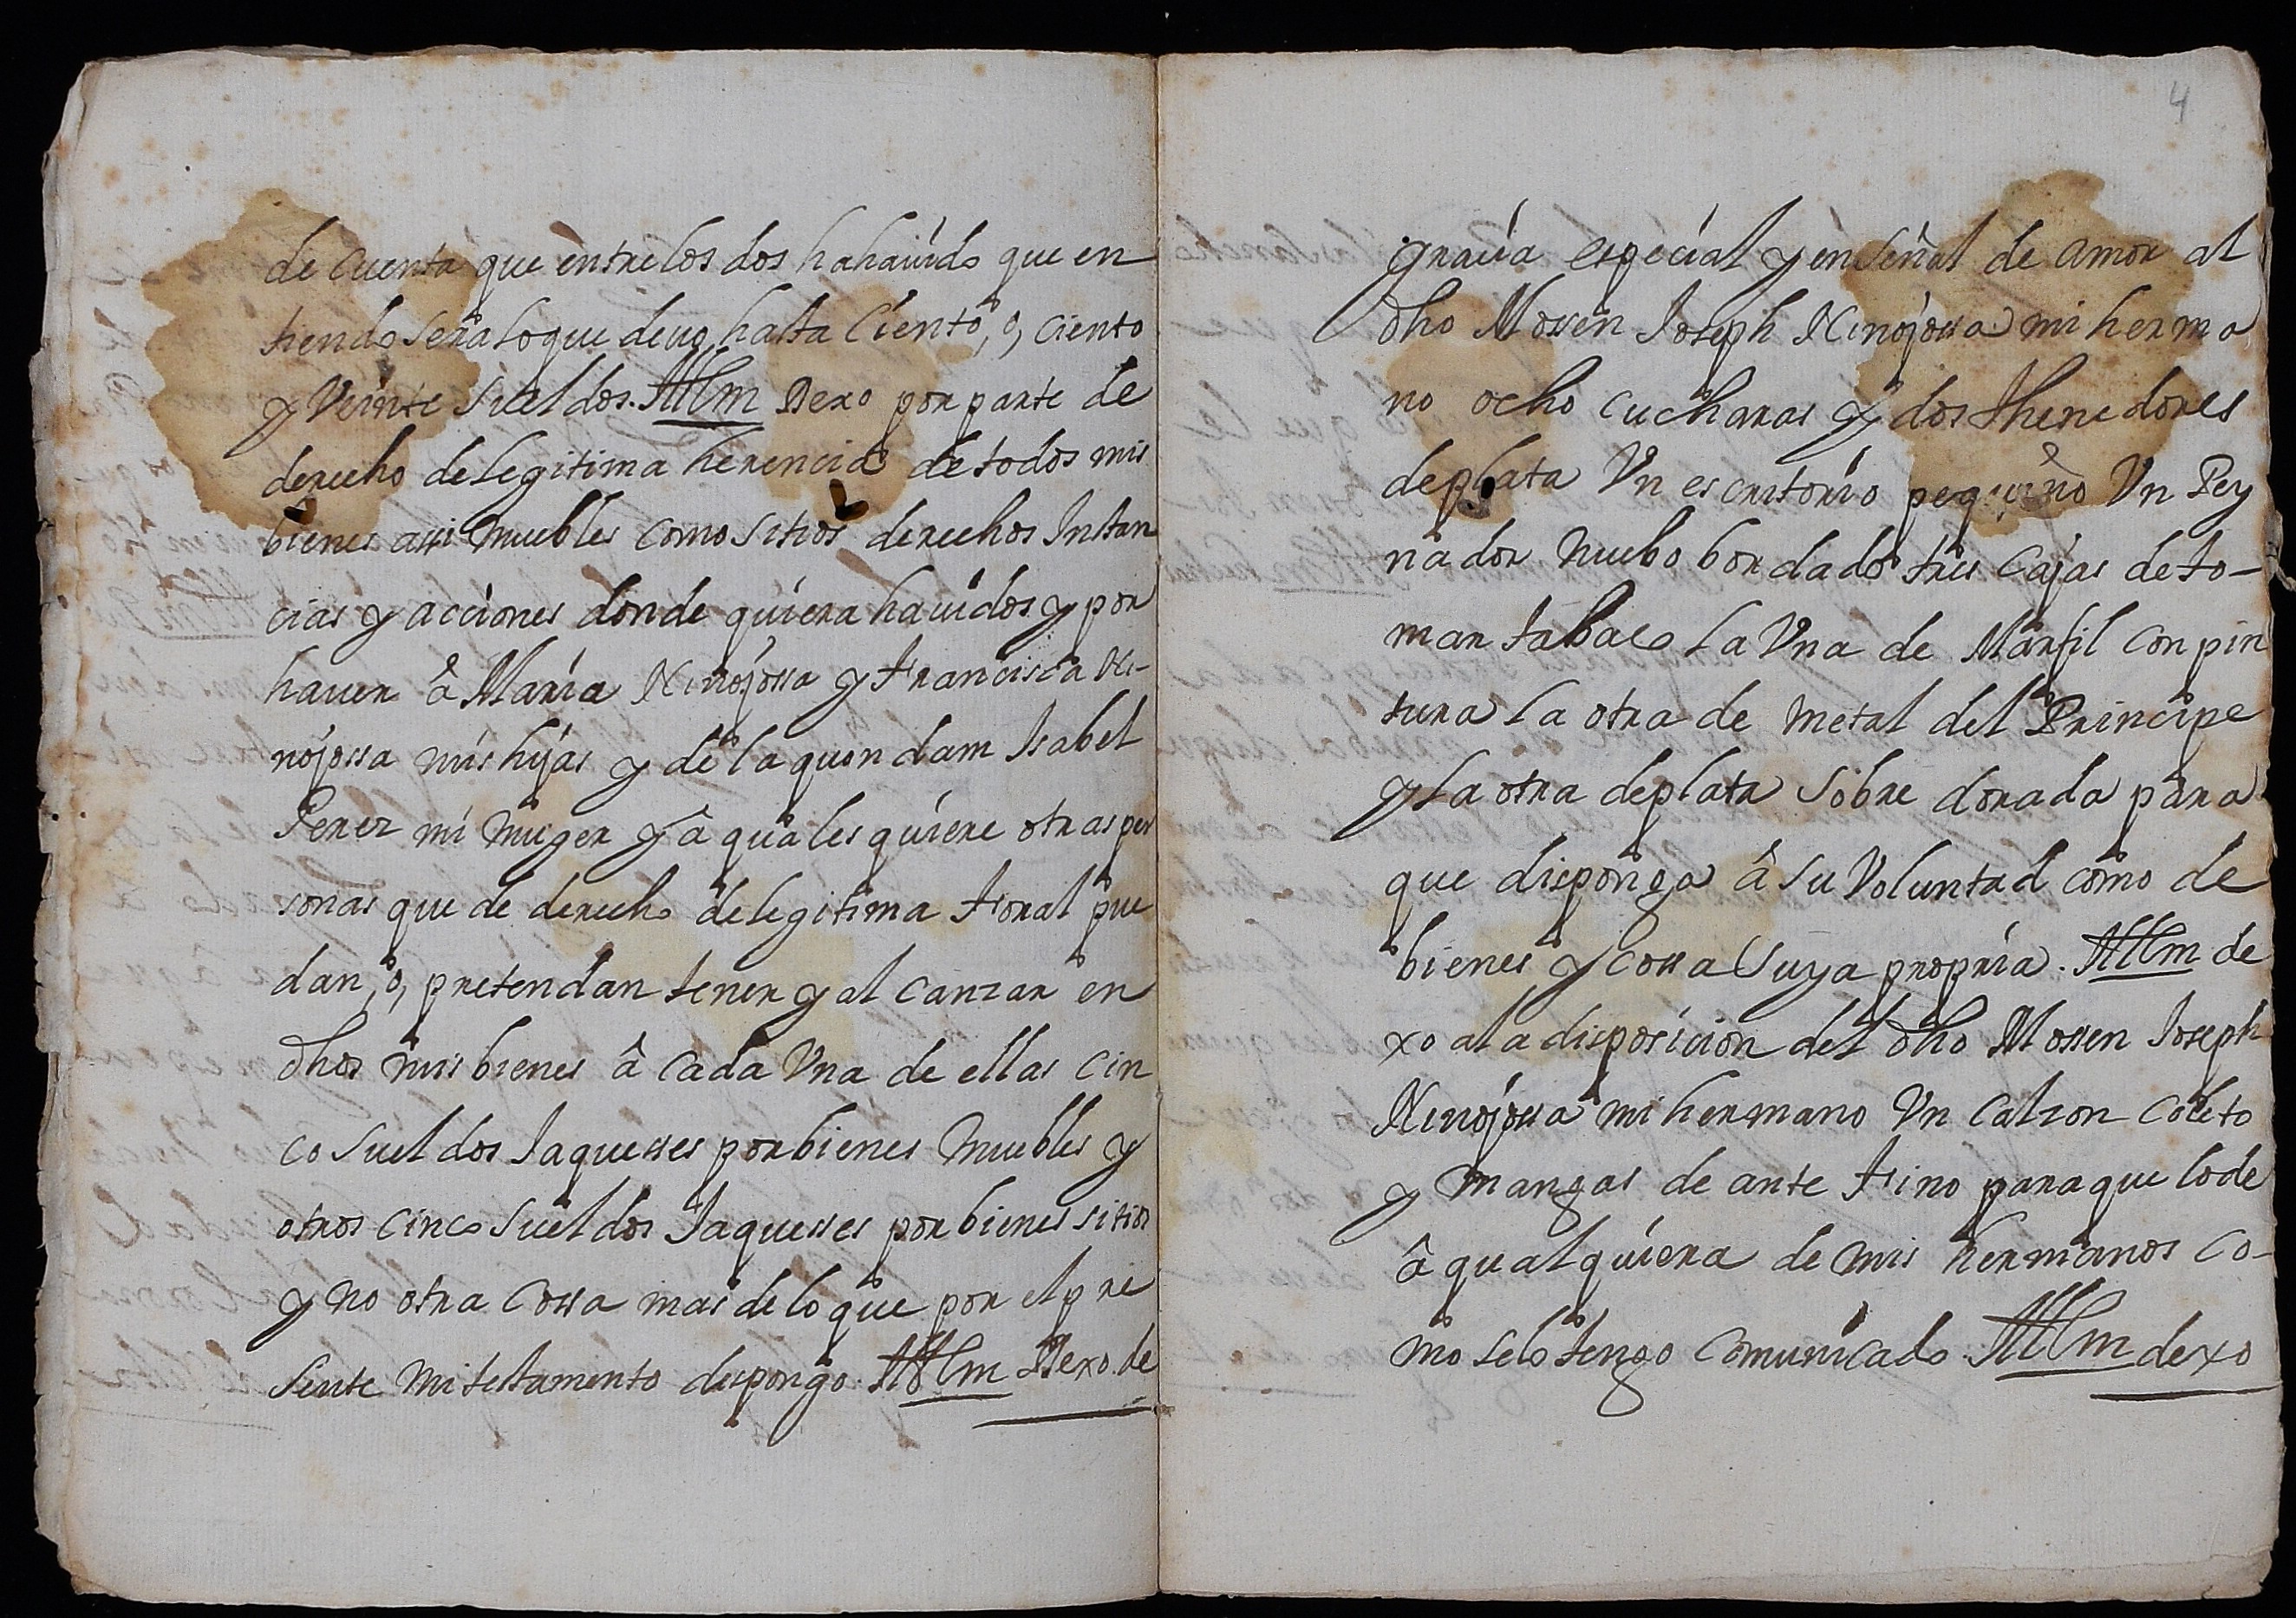 de Cuenta que entre los dos ha hauido que en
tiendo sera lo que deuo hasta Ciento, o, ciento
y Veinte Sueldos. Ittem Dexo por parte de
derecho de legitima herencia de todos mis
bienes assi muebles como sitios derechos Instan
cias y acciones donde quiera hauidos y por
hauer â Maria Hinojossa y Francisca Hi-
nojossa mis hijas y de la quondam Isabel
Perez mi muger y â quales quiere otras per
sonas que de derecho de legitima foral pue
dan, o, pretendan tener y alcanzar en
dhos mis bienes â Cada Vna de ellas cin
co Sueldos Jaquesses por bienes muebles y
otros cinco Sueldos Jaquesses por bienes sitios
y no otra Cossa mas de lo que por el pre
sente mi testamento dispongo. Ittem Dexo de
4
gracia especial y en Señal de amor al
dho Mossen Joseph Hinojossa mi herma
no ocho cucharas y dos thenedores
de plata Vn escritorio pequeño Vn Pey
nador nuebo bordado tres Cajas de to-
mar tabaco la Vna de Marfil con pin
tura la otra de metal del Principe
y la otra de plata sobre dorada para
que disponga â su Voluntad como de
bienes y cossa Suya propria. Ittem de
xo a la disposicion del dho Mossen Joseph
Hinojossa mi hermano Vn calzon coleto
y mangas de ante fino para que lo de
â qualquiera de mis hermanos co-
mo se lo tengo comunicado. Ittem dexo